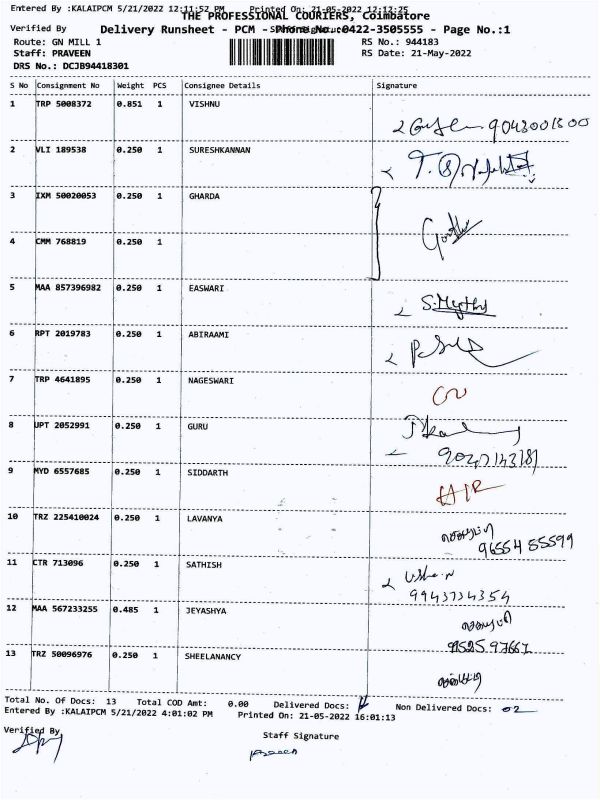 Entered By :KALAIPCM 5/21/2022 12:11:52 PM Printed On: 21-05-2022 12:12:25
THE PROFESSIONAL COURIERS, Coimbatore
Verified By Delivery Runsheet - PCM - Phone No.:0422-3505555 - Page No.:1
Staff Signature
Route: GN MILL 1 RS No.: 944183
Staff: PRAVEEN RS Date: 21-May-2022
DRS No.: DCJB94418301
S No Consignment No Weight PCS Consignee Details Signature
1 TRP 5008372 0.851 1 VISHNU
9043001300
2 VLI 189538 0.250 1 SURESHKANNAN
3 IXM 50020053 0.250 1 GHARDA
4 CMM 768819 0.250 1
5 MAA 857396982 0.250 1 EASWARI
6 RPT 2019783 0.250 1 ABIRAAMI
7 TRP 4641895 0.250 1 NAGESWARI
8 UPT 2052991 0.250 1 GURU
9 MYD 6557685 0.250 1 SIDDARTH
10 TRZ 225410024 0.250 1 LAVANYA
9655485599
11 CTR 713096 0.250 1 SATHISH
9943734354
12 MAA 567233255 0.485 1 JEYASHYA
13 TRZ 50096976 0.250 1 SHEELANANCY
Total No. Of Docs: 13 Total COD Amt: 0.00 Delivered Docs: Non Delivered Docs: 02
Entered By :KALAIPCM 5/21/2022 4:01:02 PM Printed On: 21-05-2022 16:01:13
Verified By Staff Signature